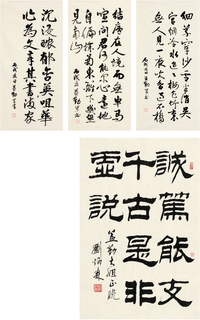 細草穿沙雪半消吳
宮烟冷水迢迢梅花竹裏
無人見一夜吹香過石橋
結廬在人境而無車馬
喧問君何能爾心遠地
自偏採菊東籬下悠然
見南山
沉浸醲郁含英咀華
作為文章其書滿家
誠篤能支
千古是非
虛說
劉炳森